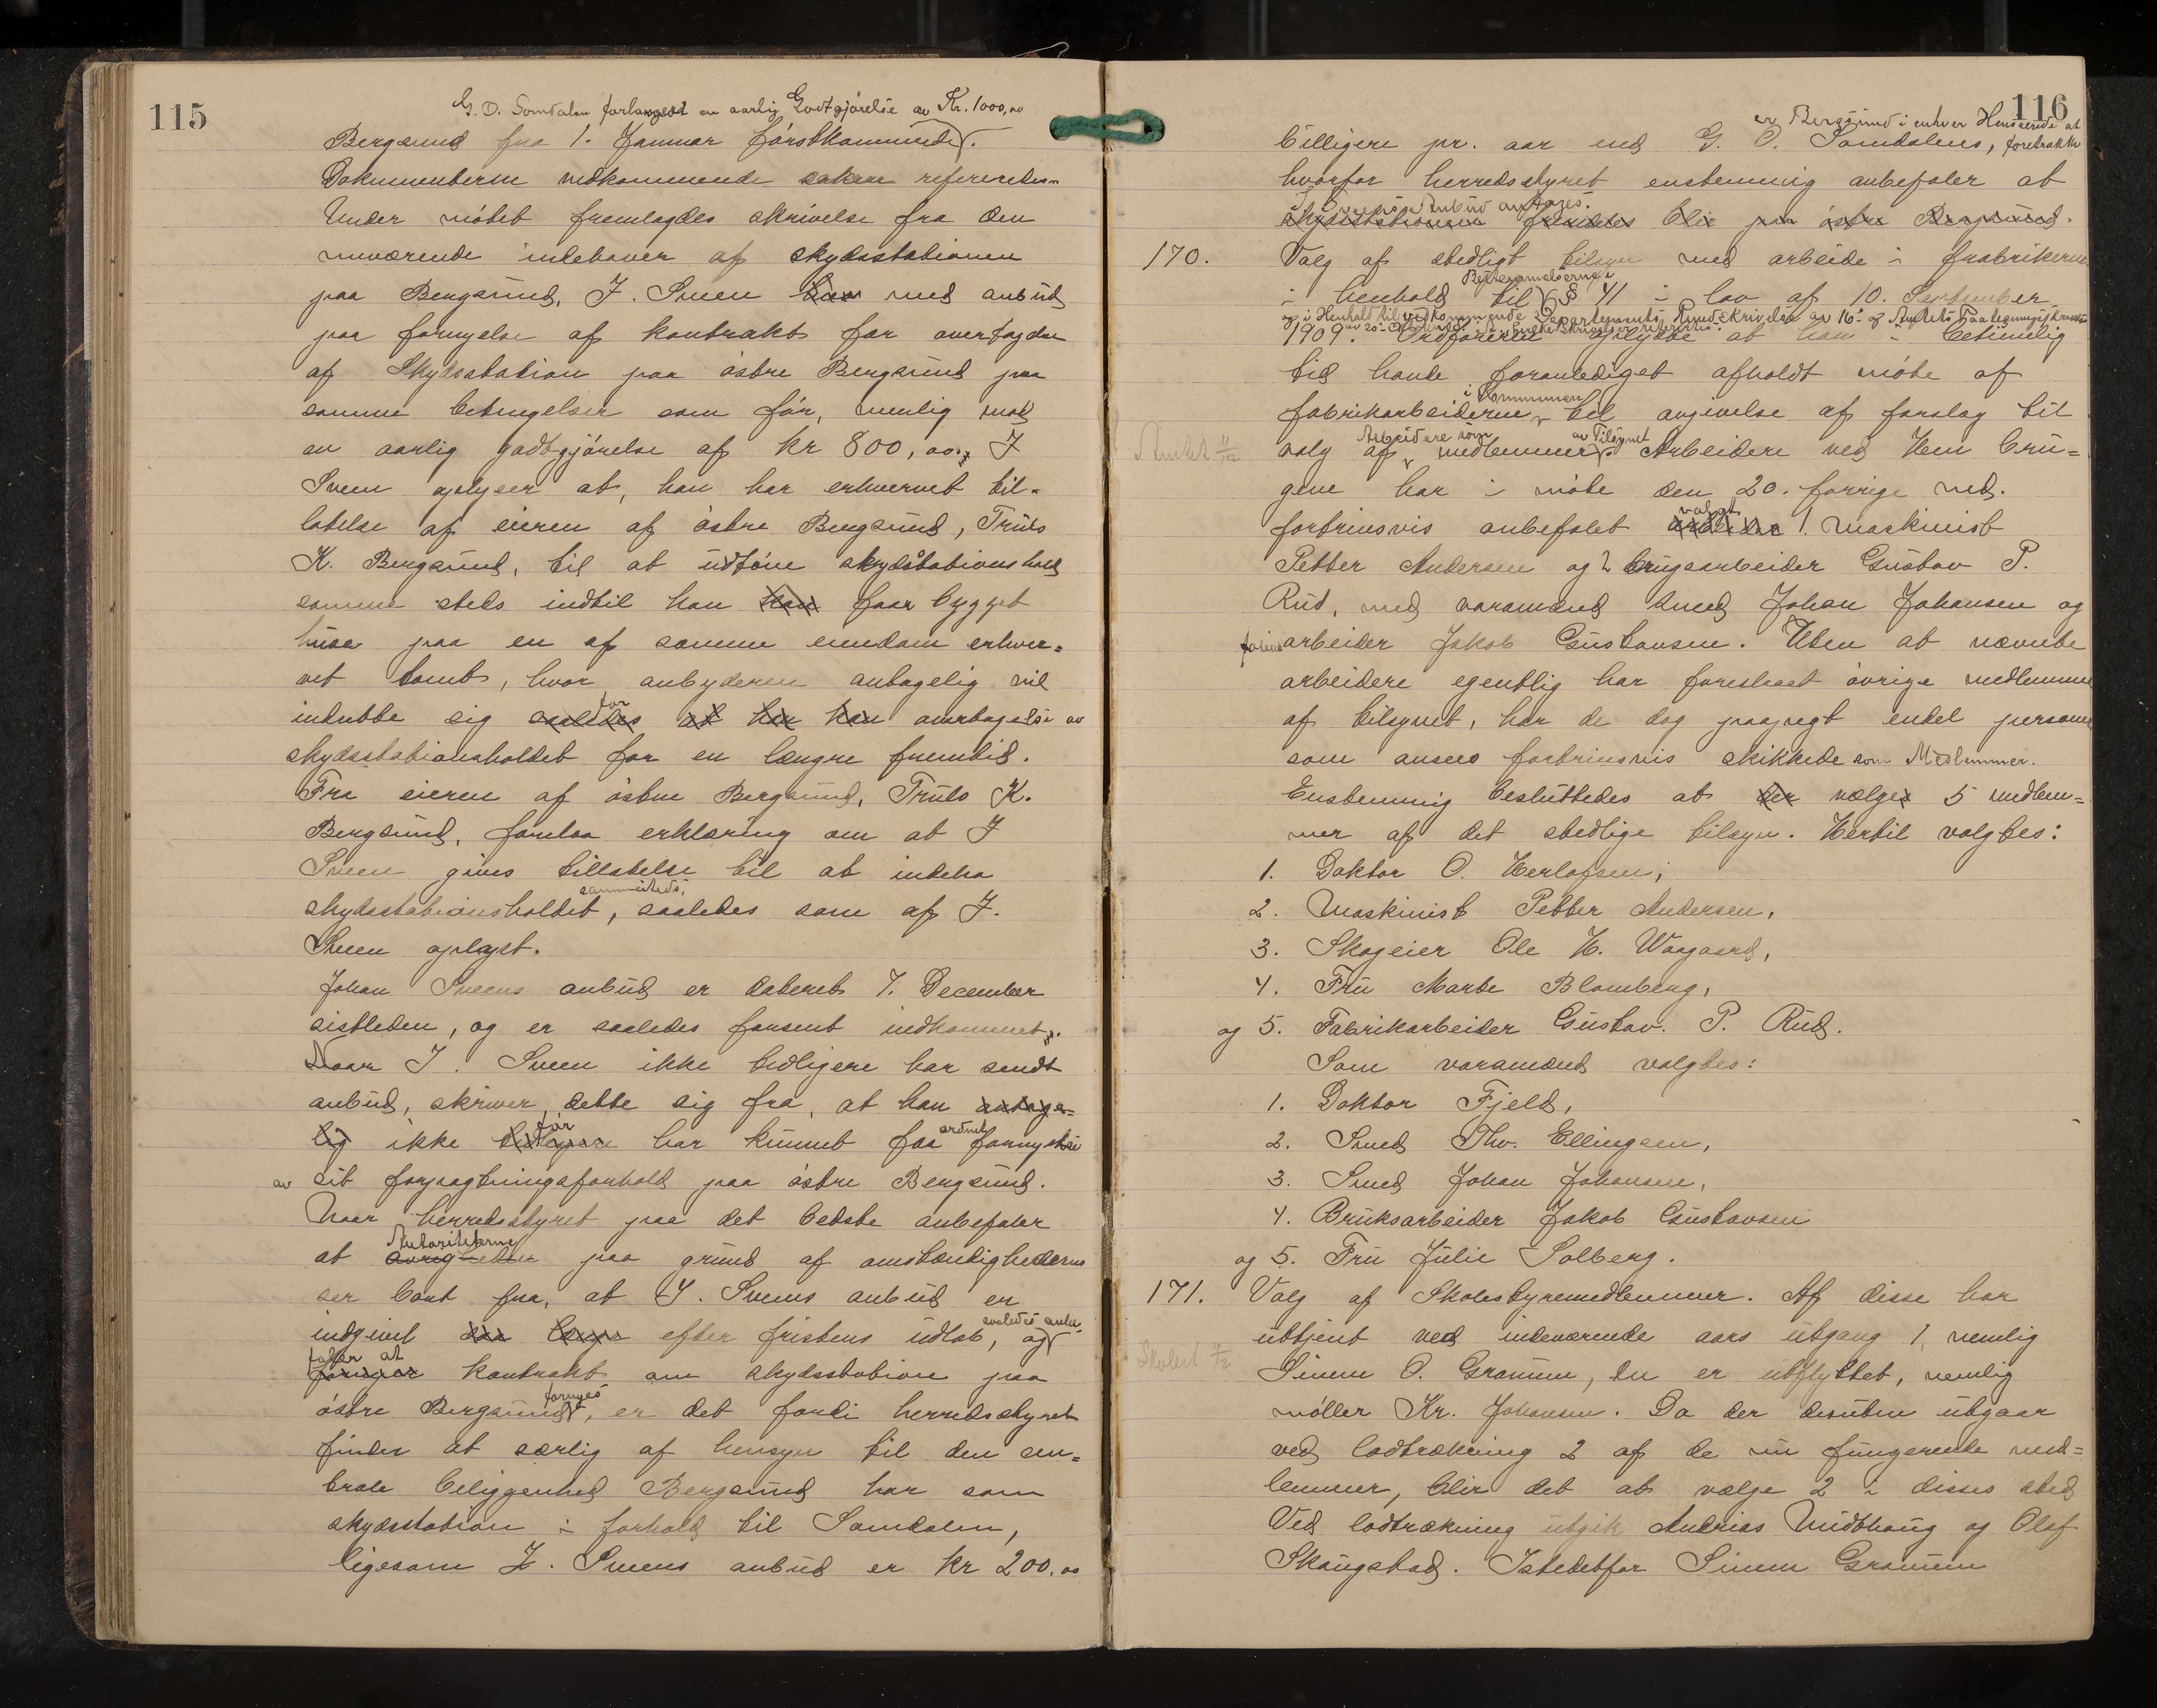 115
G. O. Somdalen forlangedt en aarlig Godtgjørelse av Kr. 1000,00
Bergsund fra 1. Januar førstkommende.
Dokumenterne vedkommende saken refereredes.
Under møtet fremlagdes skrivelse fra den
nuværende indehaver af skydsstationen
paa Bergsund, J. Sveen med anbud
paa fornyelse af kontrakt for overtagelse
af Skydsstation paa østre Bergsund paa
samme betingelser som før, nemlig mod
en aarlig godtgjørelse af kr 800,00. J
Sveen oplyser at, han har erhvervet til-
ladelse af eieren af østre Bergsund, Truls
K. Bergsund, til at udføre skydsstationshold
samme steds indtil han faar bygget
huse paa en af samme eiendom erhver-
vet tomt, hvor anbyderen antagelig vil
indrette sig for overtagelse av
skydsstationsholdet for en længre fremtid.
Fra eieren af østre Bergsund, Truls K.
Bergsund, forelaa erklæring om at J
Sveen gives tilladelse til at indeha
skydsstationsholdet sammesteds, saaledes som af J.
Sveen oplyst.
Johan Sveens anbud er dateret 7. December
sistleden, og er saaledes forsent indkommet.
Naar J. Sveen ikke tidligere har sendt
anbud, skriver dette sig fra, at han antage-
lig ikke før har kunnet faa ordnet fornyelse
av sit forpagtningsforhold paa østre Bergsund.
Naar herredsstyret paa det bedste anbefaler
at Autoriteterne paa grund af omstændighederne
ser bort fra, at J. Sveens anbud er
indgivet efter fristens udløb, og saaledes anbe-
faler at kontrakt om skydsstation paa
østre Bergsund fornyes, er det fordi herredsstyret
finder at særlig af hensyn til den cen-
trale beliggenhed Bergsund har som
skydsstation i forhold til Somdalen,
ligesom J. Sveens anbud er kr 200,00
116
er Bergsund i enhver Henseende at
billigere pr. aar end G. O. Somdalens, foretrække
hvorfor herredsstyret enstemmig anbefaler at
Sveens Anbud antages.
skydsstationen fremdeles blir paa østre Bergsund.
170. Valg af stedligt tilsyn med arbeide i fabrikerne
i henhold til Bestemmelserne i § 41 i lov af 10. September
og i Henhold til vedkommende Departements Rundskrivelse av 16. og Amtets Paategningsskrivelse
av 20. Oktober
1909. Ordføreren oplyste at han i betimelig
tid havde foranlediget afholdt møte af
fabrikarbeiderne i Kommunen til avgivelse af forslag til
Amtet 11/12
valg af Arbeidere som medlemmer av Tilsynet. Arbeidere ved Hen bru-
gene har i møte den 20. forrige md.
fortrinsvis anbefalet valgt 1. maskinist
Petter Andersen og 2 brugsarbeider Gustav P.
Rud, med varamænd Smed Johan Johansen og
arbeider Jakob Gustavsen. Uten at nævnte
arbeidere egentlig har foreslaaet øvrige medlemmer
af tilsynet, har de dog paapegt endel personer
som ansees fortrinsvis skikkede som Medlemmer.
Enstemmig besluttedes at vælge 5 medlem-
mer af det stedlige tilsyn. Hertil valgtes:
1. Doktor O. Herlofsen,
2. Maskinist Petter Andersen,
3. Skogeier Ole H. Waagaard,
4. Fru Marte Blomberg,
og 5. Fabrikarbeider Gustav. P. Rud.
Som varamænd valgtes:
1. Doktor Fjeld,
2. Smed Thv. Ellingsen,
3. Smed Johan Johansen,
4. Bruksarbeider Jakob Gustavsen
og 5. Fru Julie Solberg.
171. Valg af Skolestyremedlemmer. Af disse har
uttjent ved indeværende aars utgang 1, nemlig
Skolest 11/12
Simen O. Gramum, en er utflyttet, nemlig
møller Kr. Johansen. Da der desuten utgaar
ved lodtrækning 2 af de nu fungerende med-
lemmer, blir det at vælge 2 i disses sted
Ved lodtrækning utgik Andreas Midthaug og Olaf
Skaugstad. Istedetfor Simen Gramum